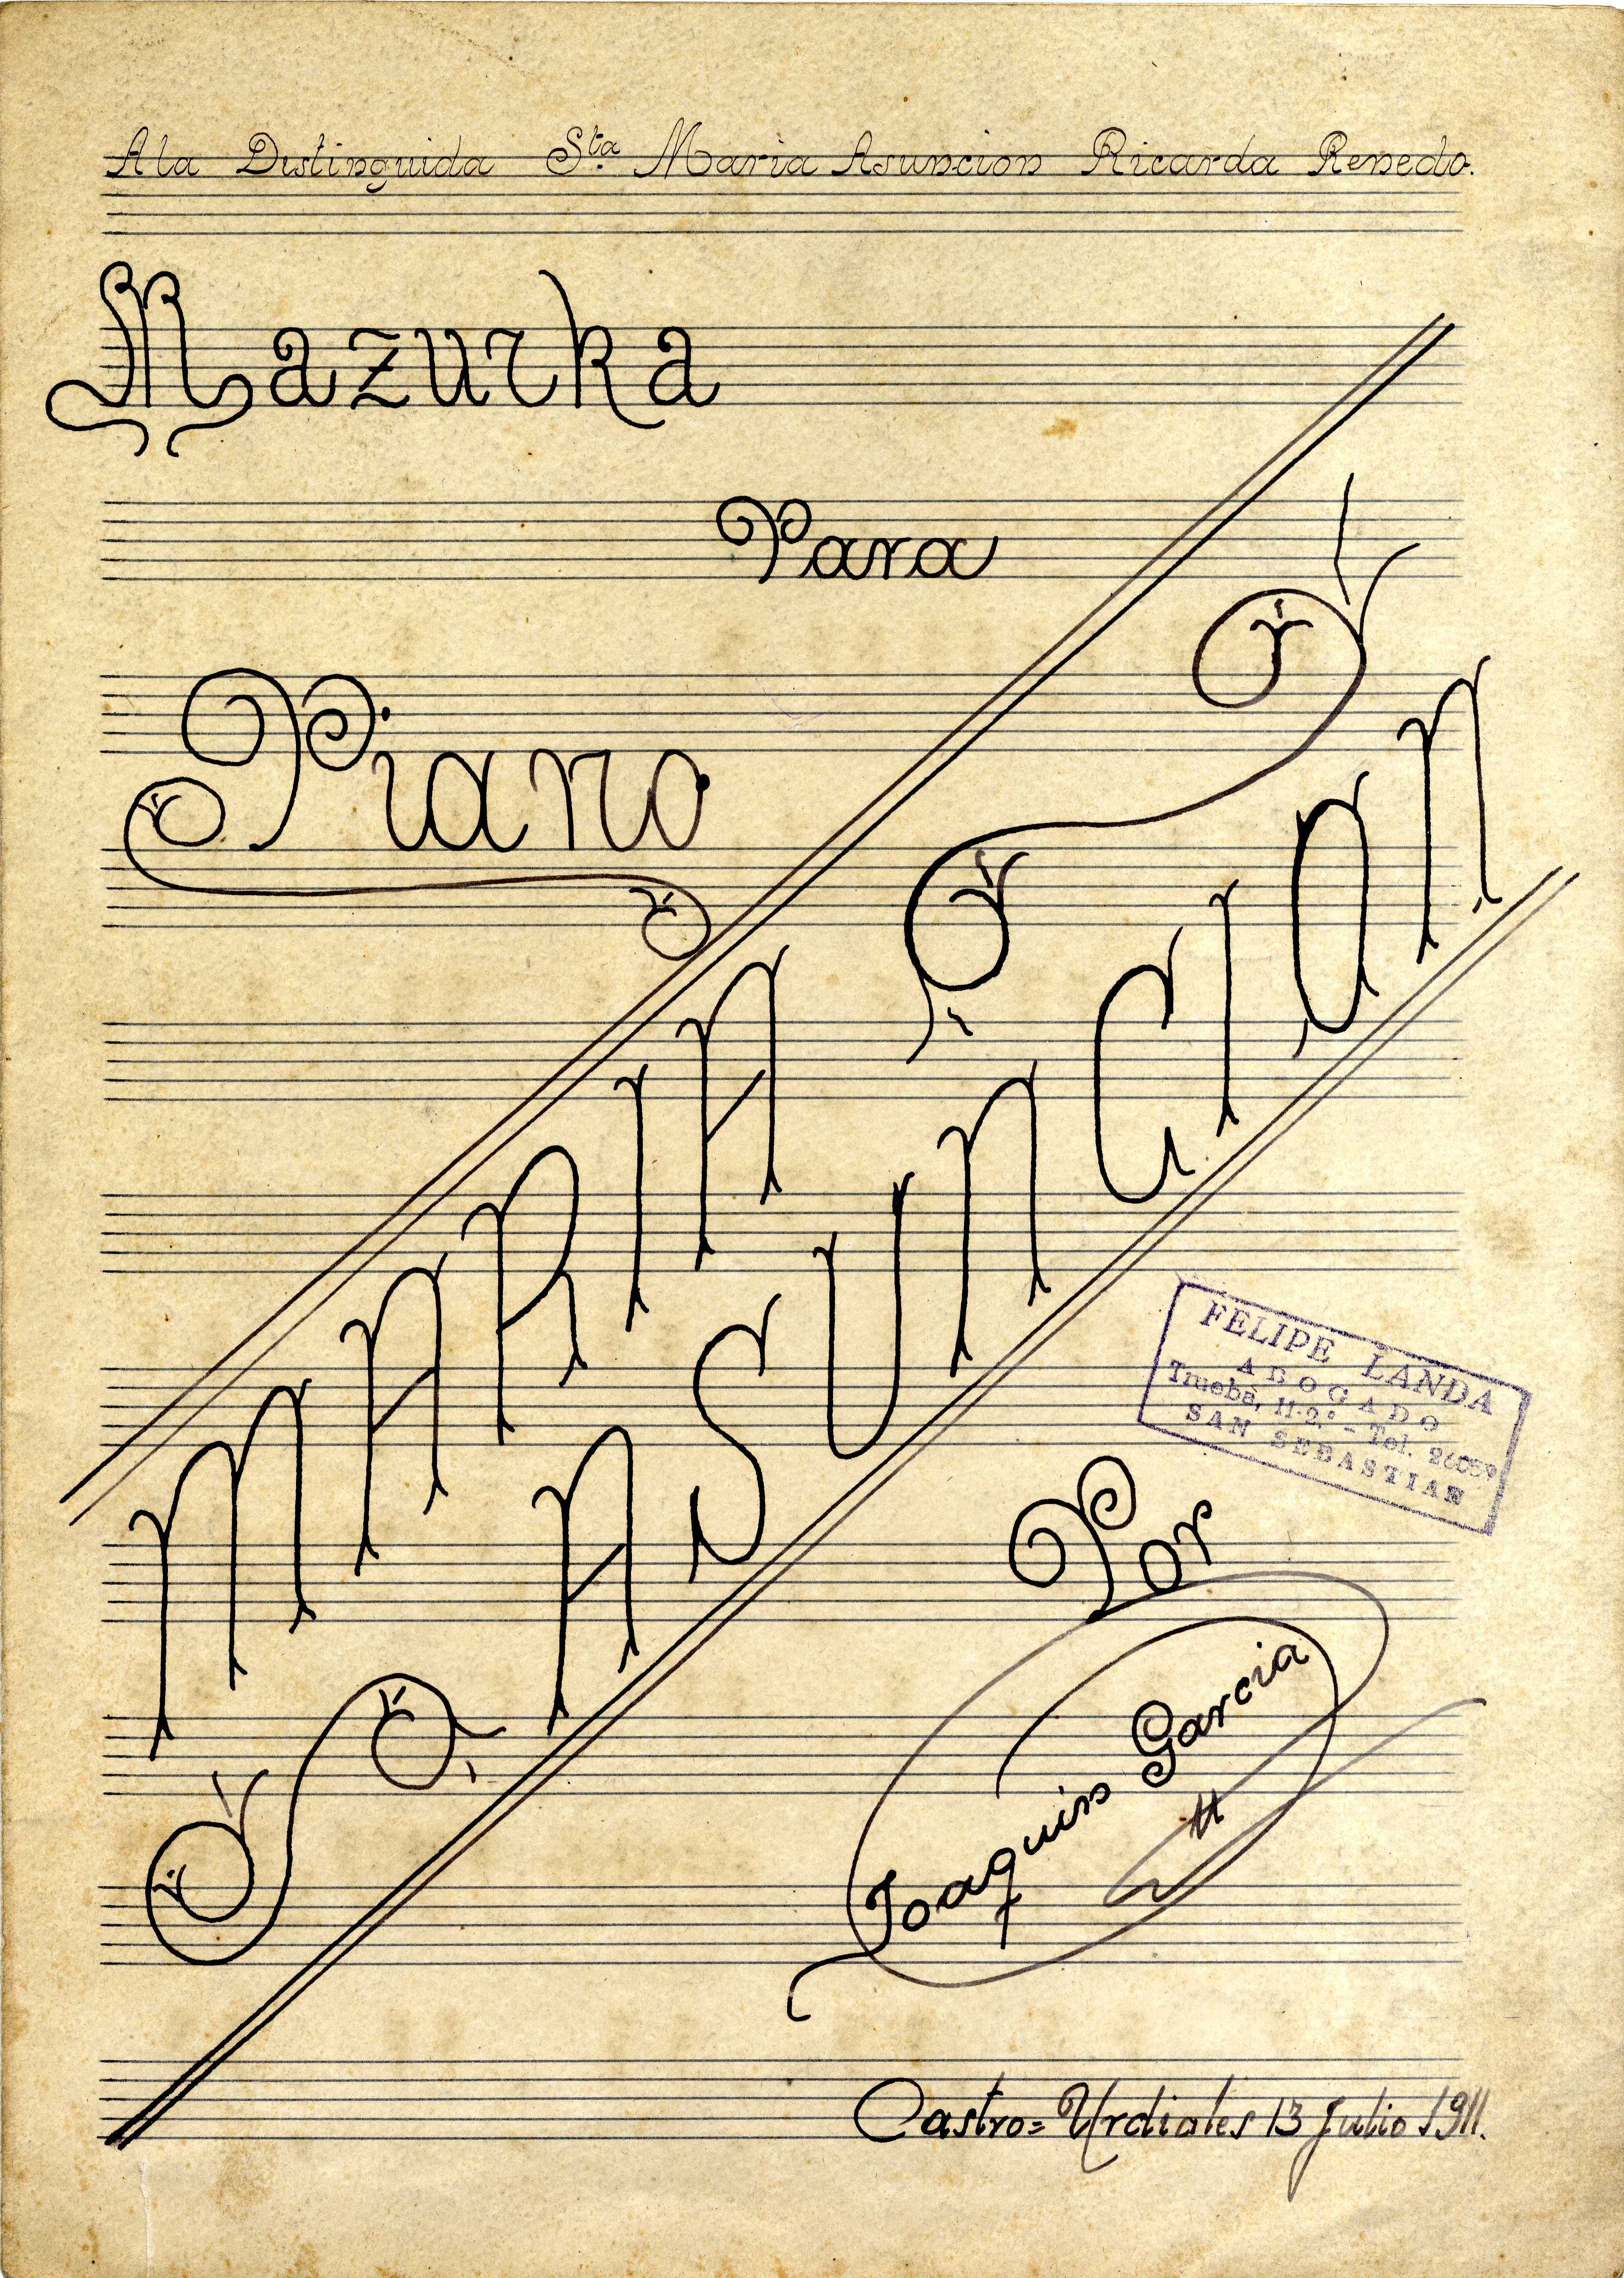 A la Distinguida Sta Maria Asuncion Ricarda Renedo.
Mazurka
Para
Piano
MARIA
ASUNCION
FELIPE LANDA
ABOGADO
Trueba, 11-2.° - Tel. 26059
SAN SEBASTIAN
Por
Joaquin Garcia
Castro=Urdiales 13 Julio 1911.